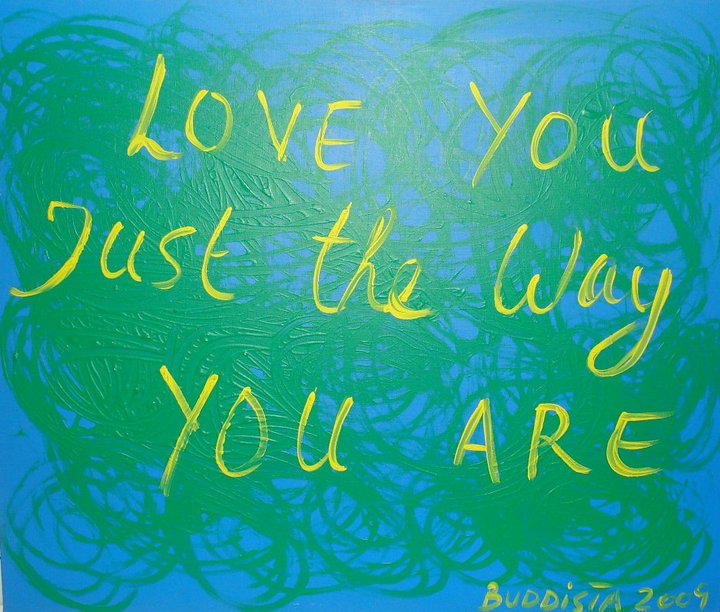 LOVE YOU
Just the Way
YOU ARE
BUDDISTA 2009